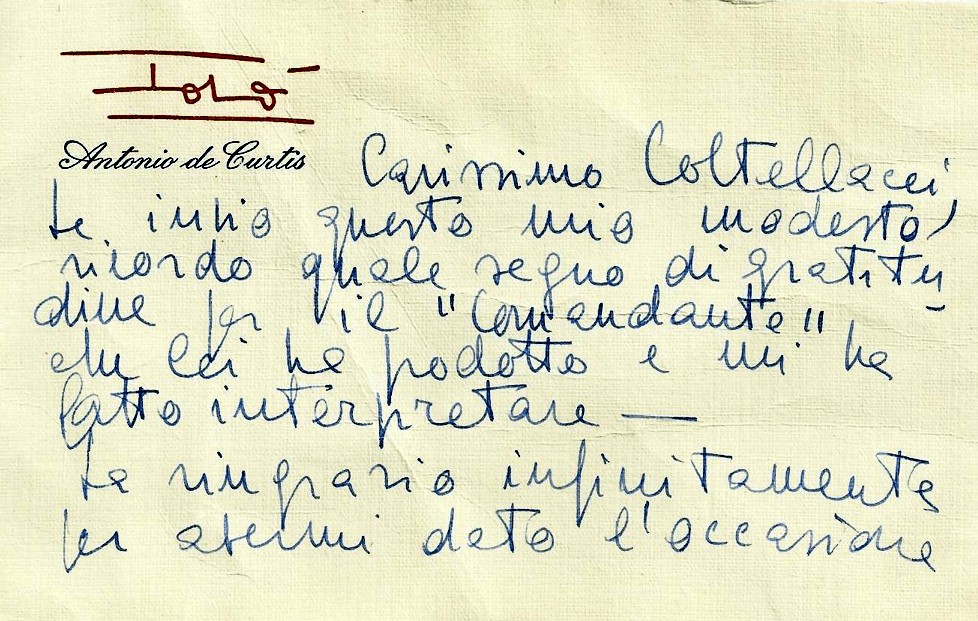 Totò
Antonio de Curtis
Carissimo Coltellacci
Le invio questo mio modesto
ricordo quale segno di gratitu
dine per il "Comandante" -
che lei ha prodotto e mi ha
fatto interpretare —
La ringrazio infinitamente
per avermi dato l'occasione